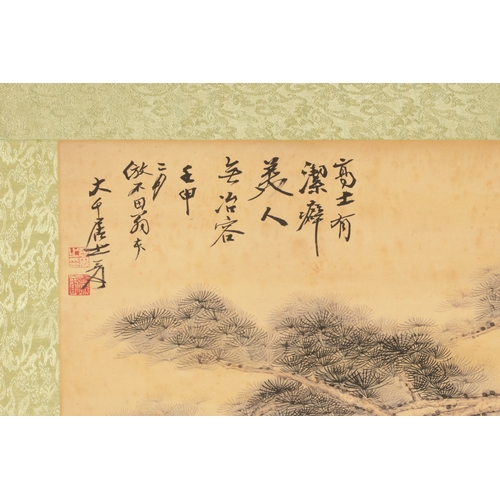 高士有
潔癖
美人
無冶容
壬申
二月
倣不田翁本
大千居士爰